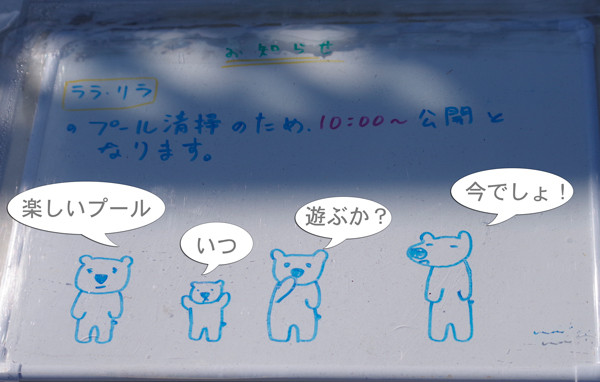 お知らせ
ララ・リラ
のプール清掃のため、10:00〜公開と
なります。
楽しいプール
いつ
遊ぶか?
今でしょ!